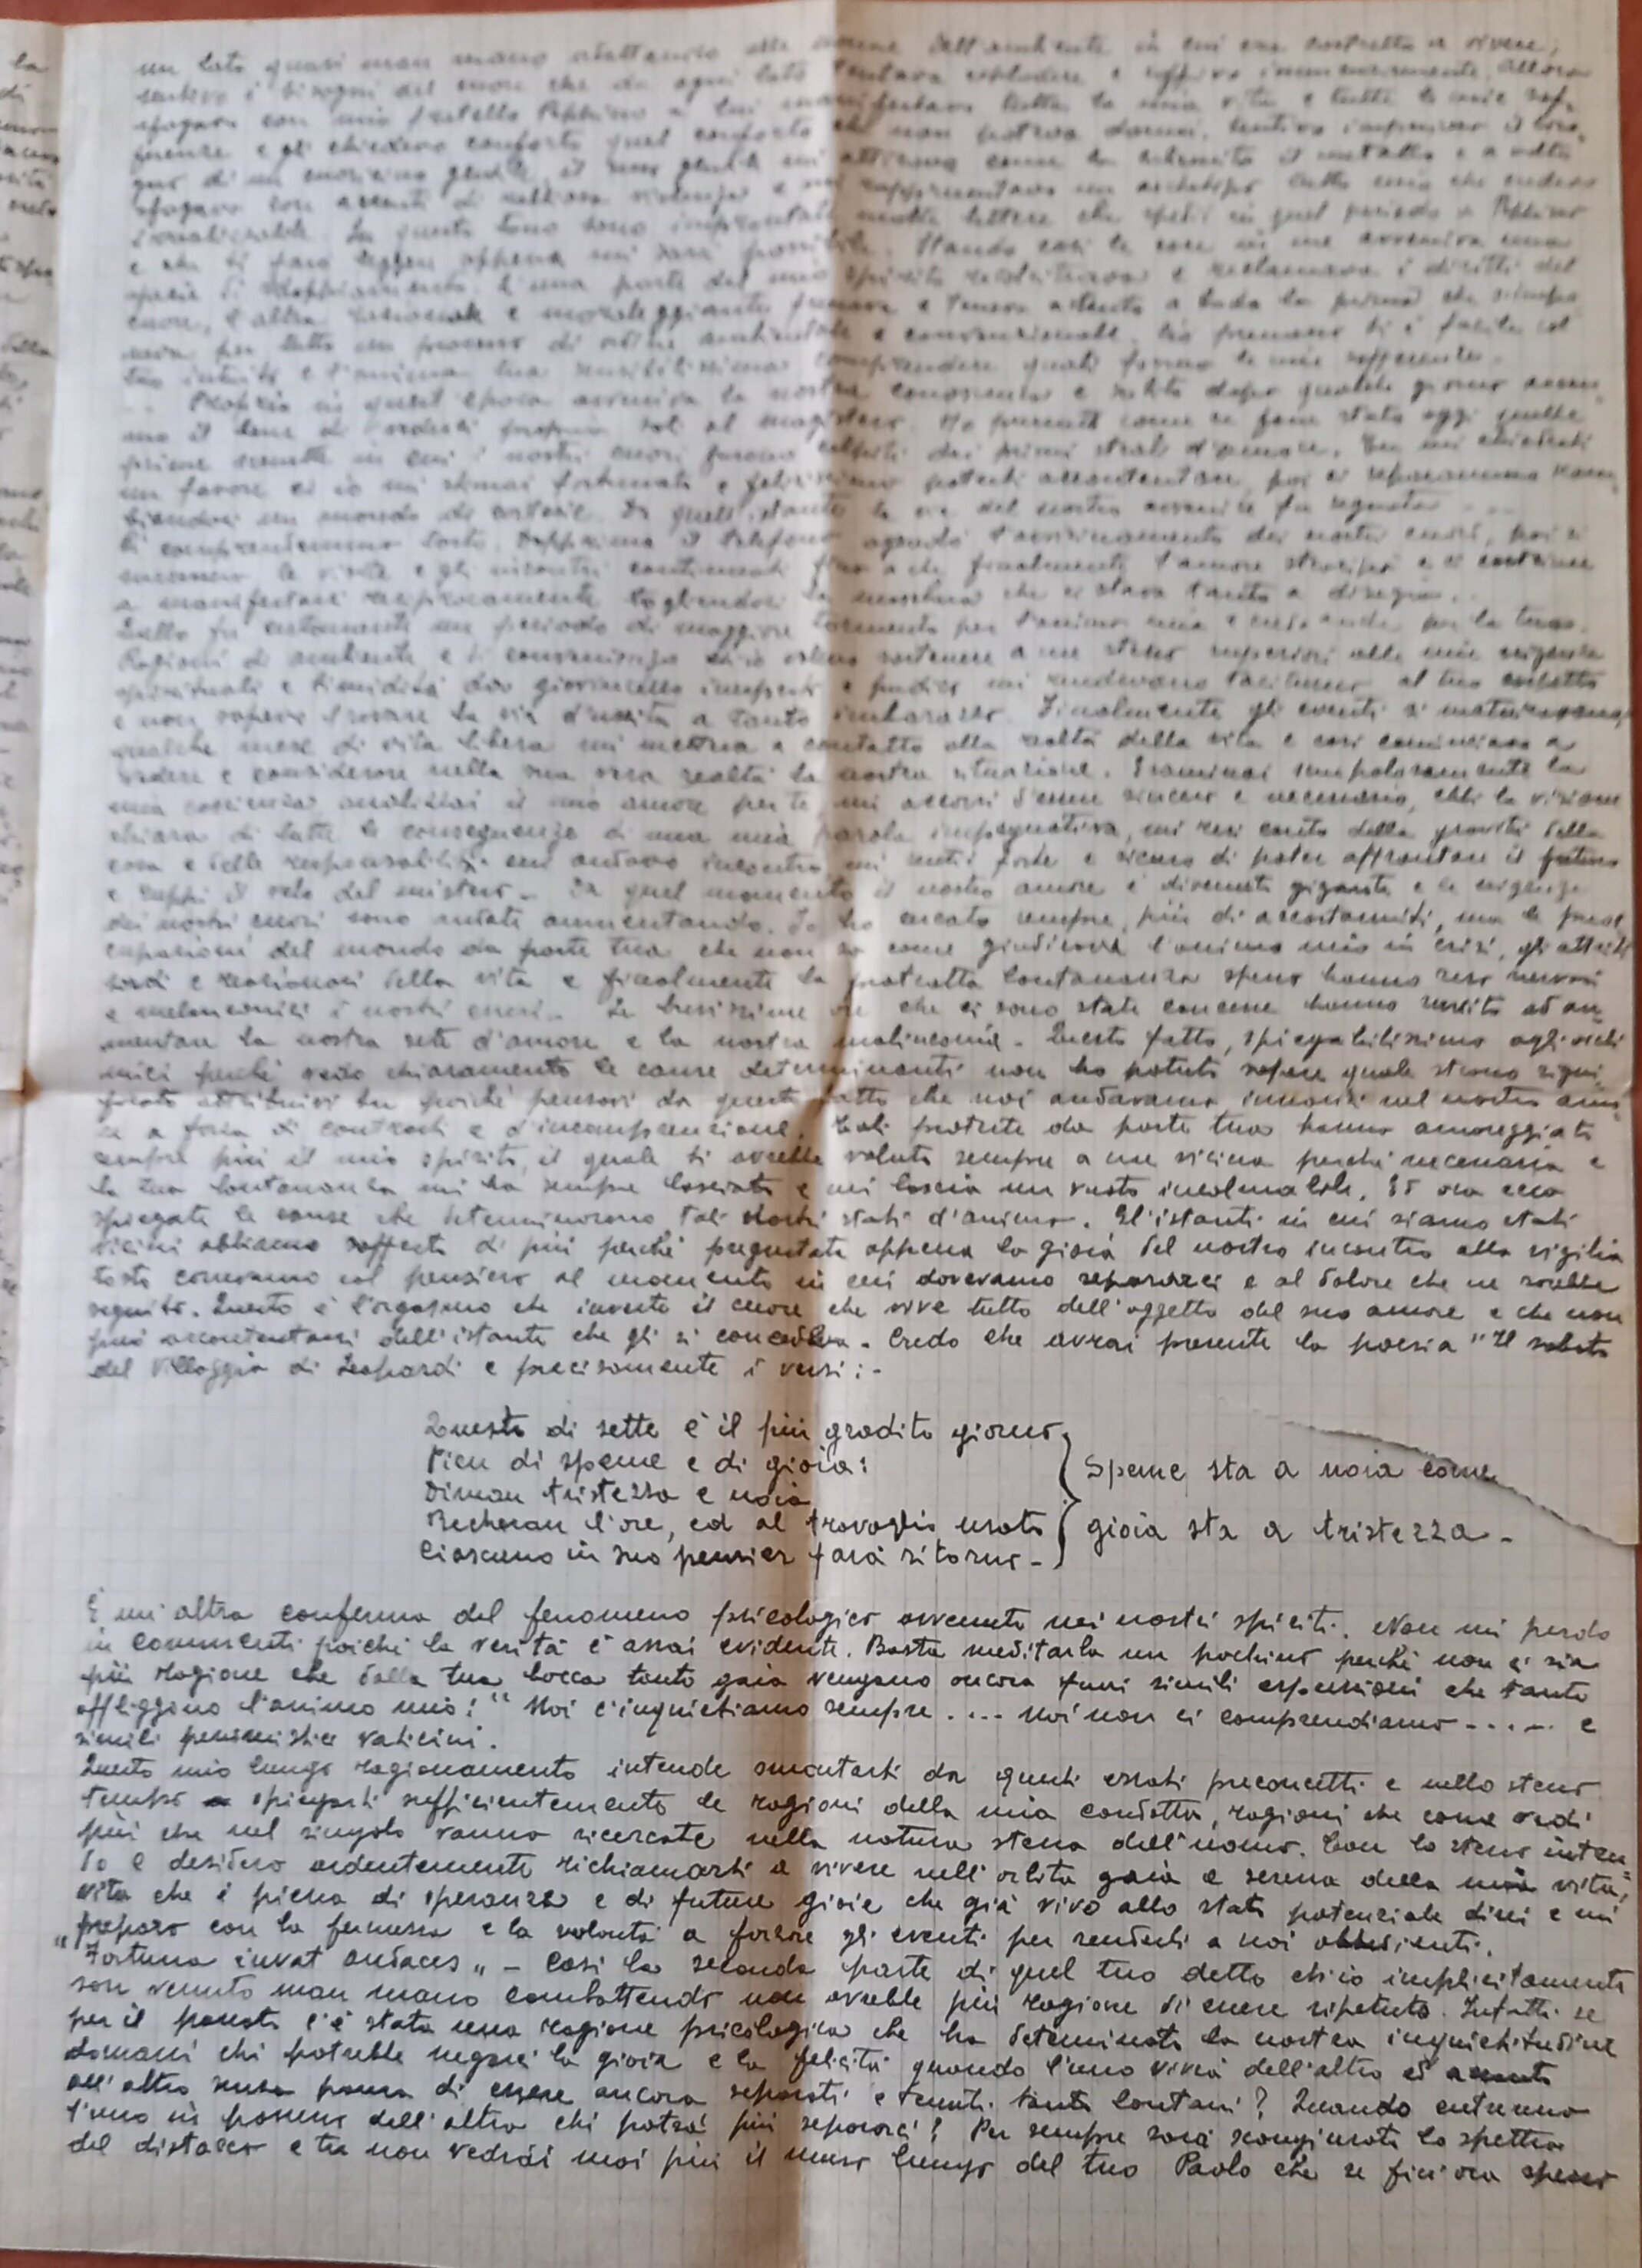 un lato quasi man mano adattando alle norme dell'ambiente in cui ero costretto a vivere,
sentivo i bisogni del cuore che da ogni lato tentava esplodere e soffrivo immensamente. Allora
sfogavo con mio fratello Peppino a lui manifestavo tutta la mia vita e tutte le mie sof-
ferenze e gli chiedevo conforto quel conforto che non poteva darmi. Sentivo imperioso il biso-
gno di un cuoricino gentile, il sesso gentile mi attirava come la calamita il metallo e a volte
sfogavo con accenti di rabbiosa violenza e mi rappresentavo un archetipo tutto mio che credevo
irrealizzabile. In questo tono sono improntate molte lettere che spedii in quel periodo a Peppino
e che ti farò leggere appena mi sarà possibile. Stando così le cose in me avveniva una
specie di sdoppiamento. L'una parte del mio spirito recalcitrava e reclamava i diritti del
cuore, l'altra razionale e moraleggiante frenava e teneva a bada la prima che
per tutto un processo di ordine ambientale e convenzionale. Ciò premesso ti è facile col
tuo intuito e l'anima tua sensibilissima comprendere quali furono le mie sofferenze.
Proprio in quell'epoca avveniva la nostra conoscenza e subito dopo qualche giorno avem-
mo il bene di vederci proprio soli al magistero. Ho presente come se fosse stato oggi quelle
prime scenette in cui i nostri cuori furono colpiti dai primi strali d'amore. Tu mi chiedesti
un favore ed io mi stimai fortunato e felicissimo poterti accontentare, poi ci separammo scam-
biandoci un mondo di cortesie. Da quell'istante la via del nostro avvenire fu segnata...
Ci comprendemmo tosto. Dapprima il telefono agevolò l'avvicinamento dei nostri cuori, poi si
successero le visite e gli incontri continuati fino a che finalmente l'amore straripò e ci costrinse
a manifestarci reciprocamente togliendoci la maschera che ci stava tanto a disagio.
Quello fu certamente un periodo di maggiore tormento per l'animo mio e credo anche per la tuo.
Ragioni di ambiente e di convenienza ch'io volevo sostenere a me stesso superiori alle mie esigenze
spirituali e timidità da giovincello inesperto e pudico mi rendevano taciturno al tuo cospetto
e non sapevo trovare la via d'uscita a tanto imbarazzo. Finalmente gli eventi si maturarono,
qualche mese di vita libera mi metteva a contatto alla realtà della vita e così cominciavo a
vedere e considerare nella sua vera realtà la nostra situazione. Esaminai scrupolosamente la
mia coscienza analizzai il mio amore per te mi accorsi d'essere sincero e necessario, ebbi la visione
chiara di tutte le conseguenze di una mia parola impegnativa, mi resi conto della gravità della
cosa e delle responsabilità cui andavo incontro, mi sentii forte e sicuro di poter affrontare il futuro
e ruppi il velo del mistero - Da quel momento il nostro amore è divenuto gigante e le esigenze
dei nostri cuori sono andate aumentando. Io ho cercato sempre, più di accostarmiti, ma le preoc-
cupazioni del mondo da parte tua che non so come giudicava l'animo mio in crisi, gli attriti
sordi e reazionari della vita e finalmente la protratta lontananza spesso hanno reso nervosi
e melanconici i nostri cuori - Le brevissime ore che ci sono state concesse hanno servito ad au-
mentare la nostra sete d'amore e la nostra malinconia - Questo fatto, spiegabilissimo agli occhi
miei perché vedo chiaramente le cause determinanti non ho potuto sapere quale strano signi-
ficato attribuivi tu poiché pensavi da questo fatto che noi andavamo innanzi nel nostro amo-
re a forza di contrasti e d'incomprensione. Tali protrete da parte tua hanno amareggiato
sempre più il mio spirito, il quale ti avrebbe voluta sempre a me vicina perché necessaria e
la tua lontananza mi ha sempre lasciato e mi lascia un vuoto incolmabile. Ed ora ecco
spiegate le cause che determinarono tali nostri stati d'animo. Gl'istanti in cui siamo stati
vicini abbiamo sofferto di più perché pregustata appena la gioia del nostro incontro alla vigilia
tosto corravamo col pensiero al momento in cui dovevamo separarci e al dolore che ne sarebbe
seguito. Questo è l'orgasmo che investe il cuore che vive tutto dell'oggetto del suo amore e che non
può accontentarsi dell'istante che gli si concedeva - Credo che avrai presente la poesia "Il sabato
del Villaggio di Leopardi e precisamente i versi: -
Questo di sette è il più gradito giorno,
Pien di speme e di gioia:
Diman tristezza e noia
Recheran l'ore, ed al travaglio usato
Ciascuno in suo pensier farà ritorno -
Speme sta a noia come
gioia sta a tristezza -
È un'altra conferma del fenomeno psicologico avvenuto nei nostri spiriti. Non mi perdo
in commenti poiché la verità è assai evidente. Basta meditarla un pochino perché non ci sia
più ragione che dalla tua bocca tanto gaia vengano ancora fuori simili espressioni che tanto
affliggino l'animo mio: "Noi c'inquietiamo sempre.... noi non ci comprendiamo..... e
simili pessimistici vaticini.
Questo mio lungo ragionamento intende smontarti da questi errati preconcetti e nello stesso
tempo spiegarti sufficientemente le ragioni della mia condotta, ragioni che come vedi
più che nel singolo vanno ricercate nella natura stessa dell'uomo. Con lo stesso inten-
do e desidero ardentemente richiamarti a vivere nell'orbita gaia e serena della mia vita,
vita che è piena di speranze e di future gioie che già vivo allo stato potenziale direi e mi
preparo con la fermezza e la volontà a forzare gli eventi per renderli a noi obbedienti.
"Fortuna iuvat audaces" - Così la seconda parte di quel tuo detto ch'io implicitamente
son venuto man mano combattendo non avrebbe più ragione di essere ripetuto. Infatti se
per il passato c'è stata una ragione psicologica che ha determinato la nostra inquietitudine
domani chi potrebbe negarci la gioia e la felicità quando l'uno vivrà dell'altro ed accanto
all'altro senza paura di essere ancora separati e tenuti tanto lontani? Quando entreremo
l'uno in possesso dell'altro chi potrà più separarci? Per sempre sarà scongiurato lo spettro
del distacco e tu non vedrai mai più il muso lungo del tuo Paolo che se fin'ora spesso